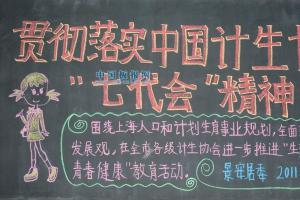 贯彻落实中国计生
“七代会”精神
中国板报网
围绕上海人口和计划生育事业规划,全面
发展观,在全市各级计生协会进一步推进“生
青春健康”教育活动。
景宏居委 2011